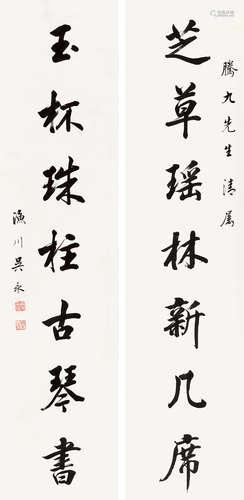 騰九先生清屬
芝草瑤林新几席
玉杯珠柱古琴書
漁川吳永